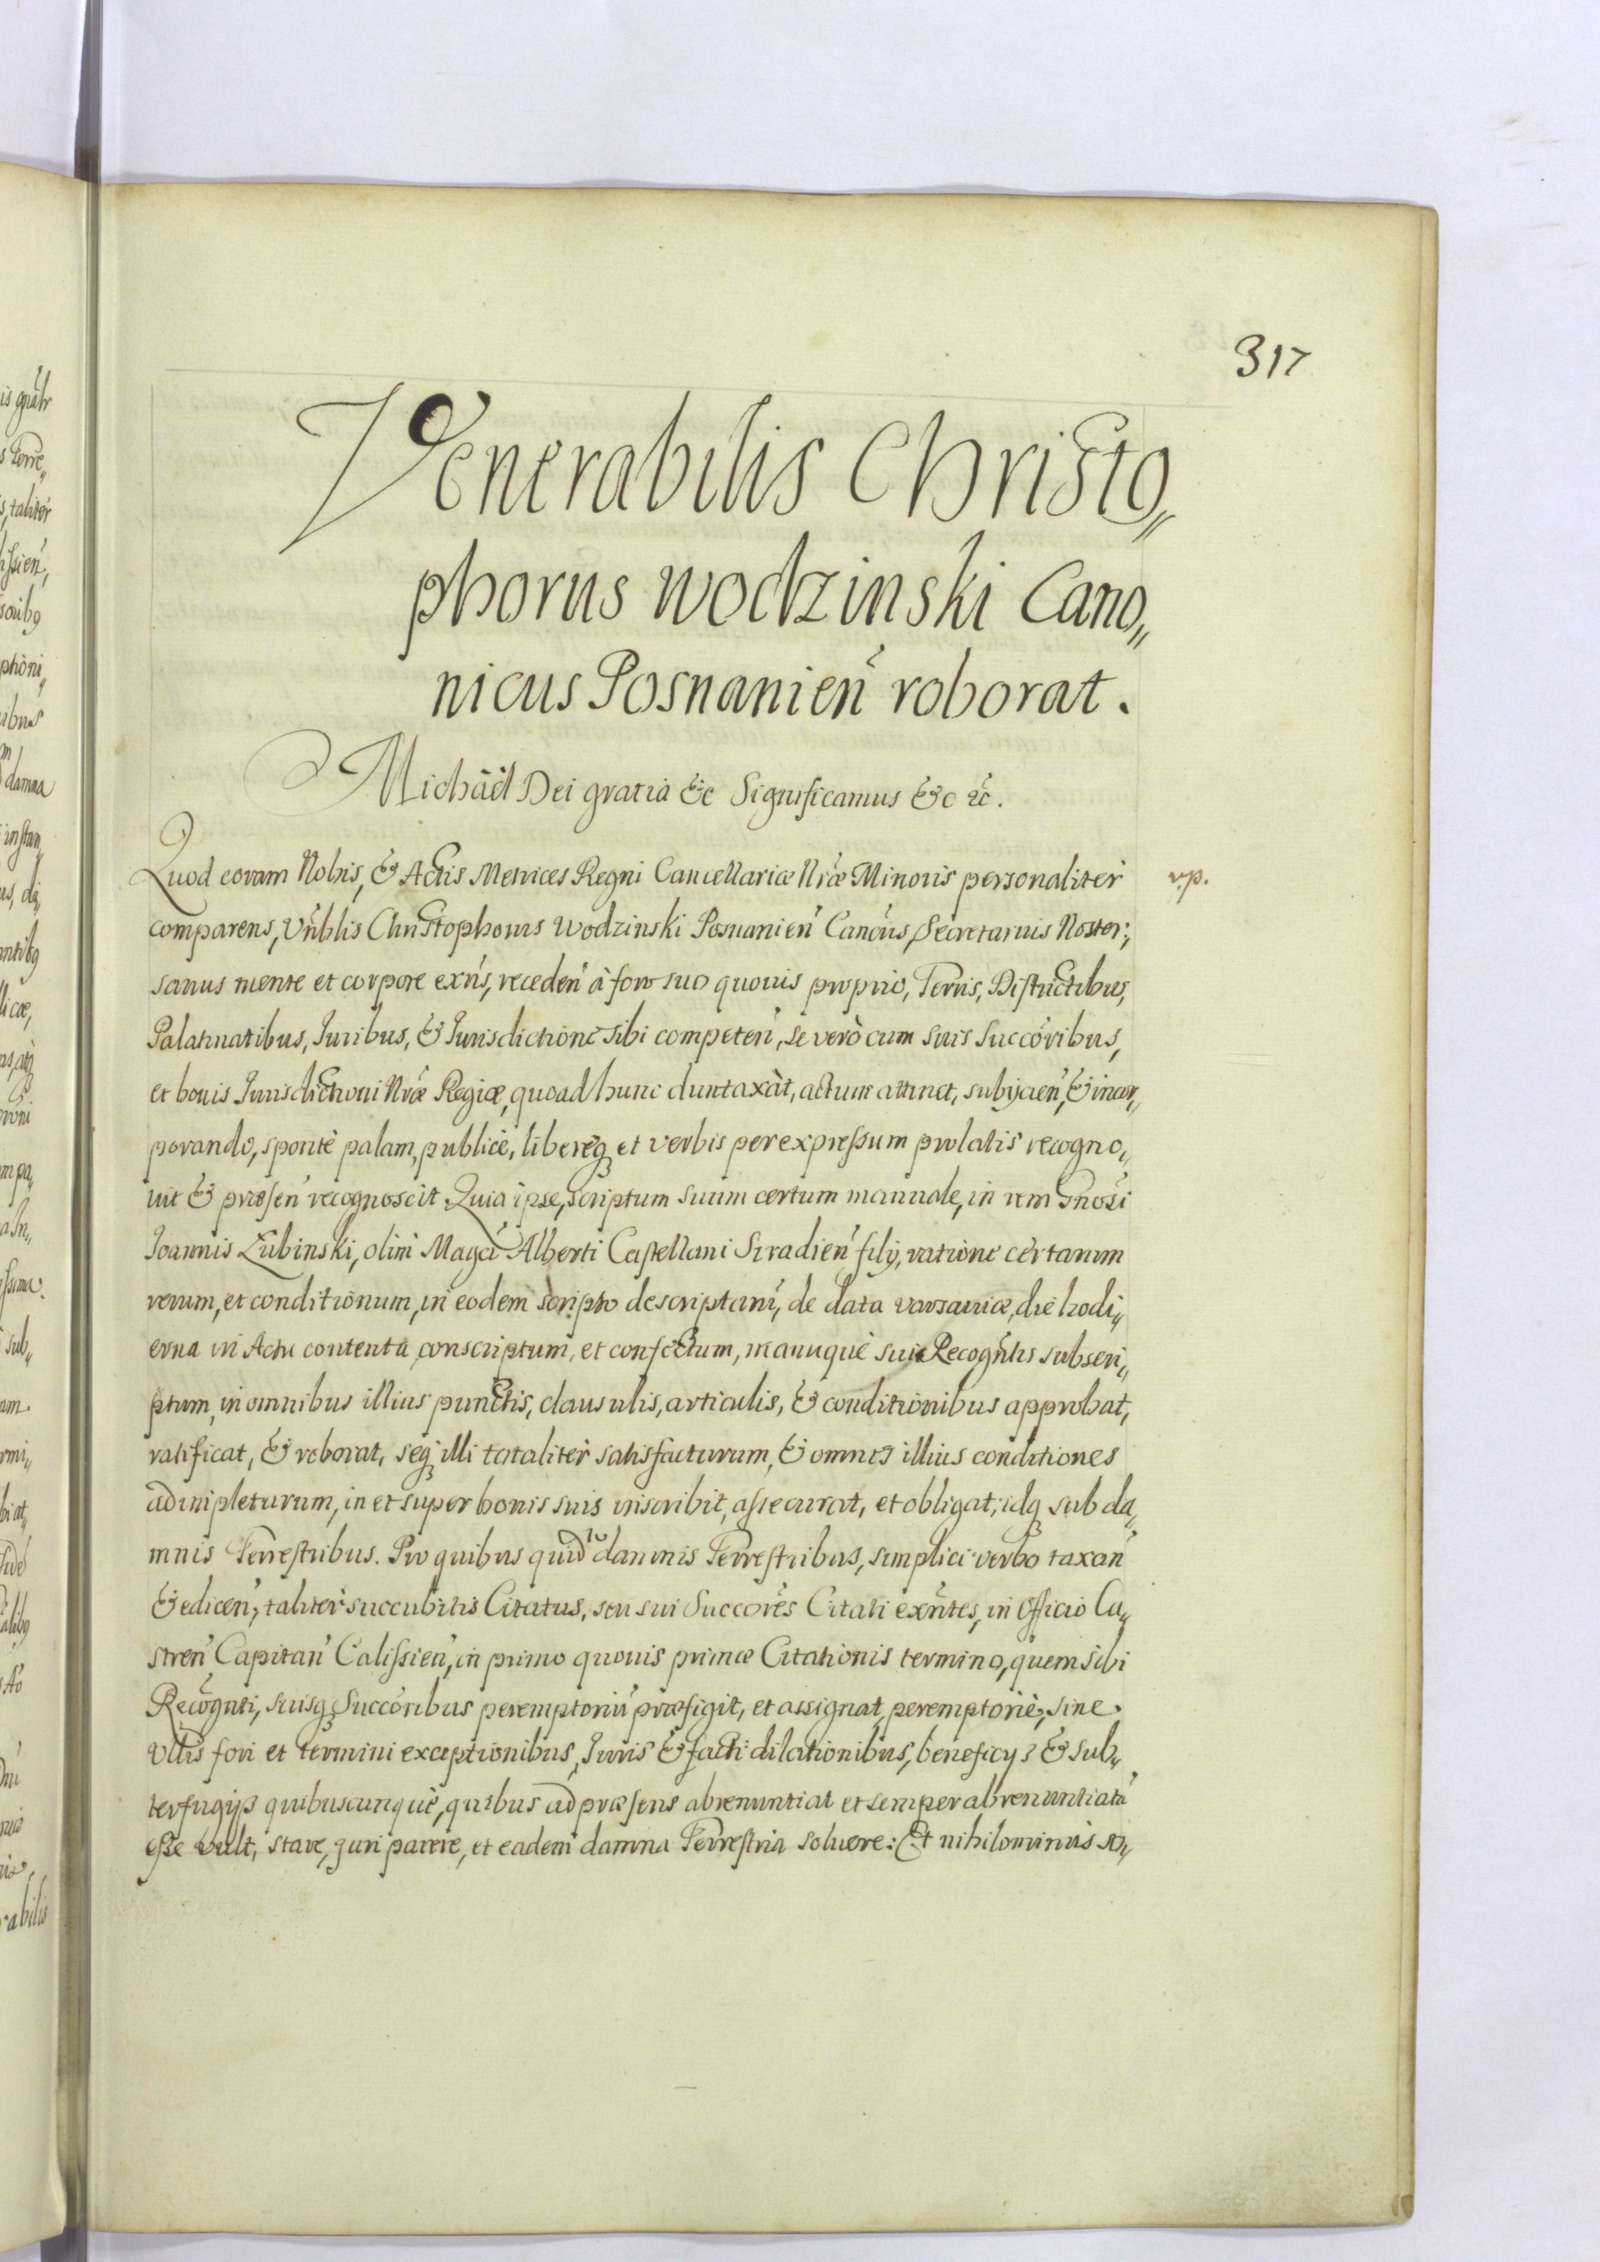 317
Venerabilis Christo„
phorus Wodzinski Cano„
nicus Posnanien̄ roborat.
Michäel Dei gratia &c Significamus &c &c̄.
Quod coram Nobis, & Actis Metrices Regni Cancellariæ Nr̄æ Minoris personaliter v.p.
comparens, Vn̄blis Christophorus Wodzinski Posnanien̄ Canc̄us, Secretarius Noster;,
sanus mente et corpore exn̄s, receden̄ à foro suo quouis proprio, Terris, Districtibus,
Palatinatibus, Juribus, & Jurisdictione sibi competen̄, se verò cum suis Succōribus,
et bonis Jurisdictioni Nr̄æ Regiæ, quoad hunc duntaxàt, actum attinet, subijcien̄, & incor„
porando, spontè palam, publicè, libereq; et verbis per expressum prolatis recogno„
uit & præsen̄ recognoscit. Quia ipse, scriptum suum certum manuale, in rem Gn̄osi
Joannis Lubinski, olim Magc̄i Alberti Castellani Siradien̄ filij, ratione certarum
rerum, et conditionum, in eodem scripto descriptarū, de data Varsauiæ, die hodi„
erna in Actu contentâ conscriptum, et confectum, manuquè sui Recogn̄tis subscri„
ptum, in omnibus illius punctis, clausulis, articulis, & conditionibus approbat,
ratificat, & roborat, seq; illi totalitèr satisfacturum, & omnes illius conditiones
adimpleturum, in et super bonis suis inscribit, assecurat, et obligat; idq; sub da„
mnis Terrestribus. Pro quibus quid̄ to damnis Terrestribus, simplici verbo taxan̄
& edicen̄, talitèr succubitis Citatus, seu sui Succōres Citati exn̄tes, in Officio Ca„
stren̄ Capitan̄ Calissien̄, in primo quouis primæ Citationis termino, quem sibi
Recōgnti, suisq; Succōribus peremptoriū præfigit, et assignat, peremptoriè, sine
Vllis fori et termini exceptionibus, Juris & facti dilationibus, beneficijs & sub„
terfugijs quibuscunquè, quibus ad præsens abrenuntiat et semper abrenuntiatū
esse vult, stare, juri parere, et eadem damna Terrestria soluere: Et nihilominus so„